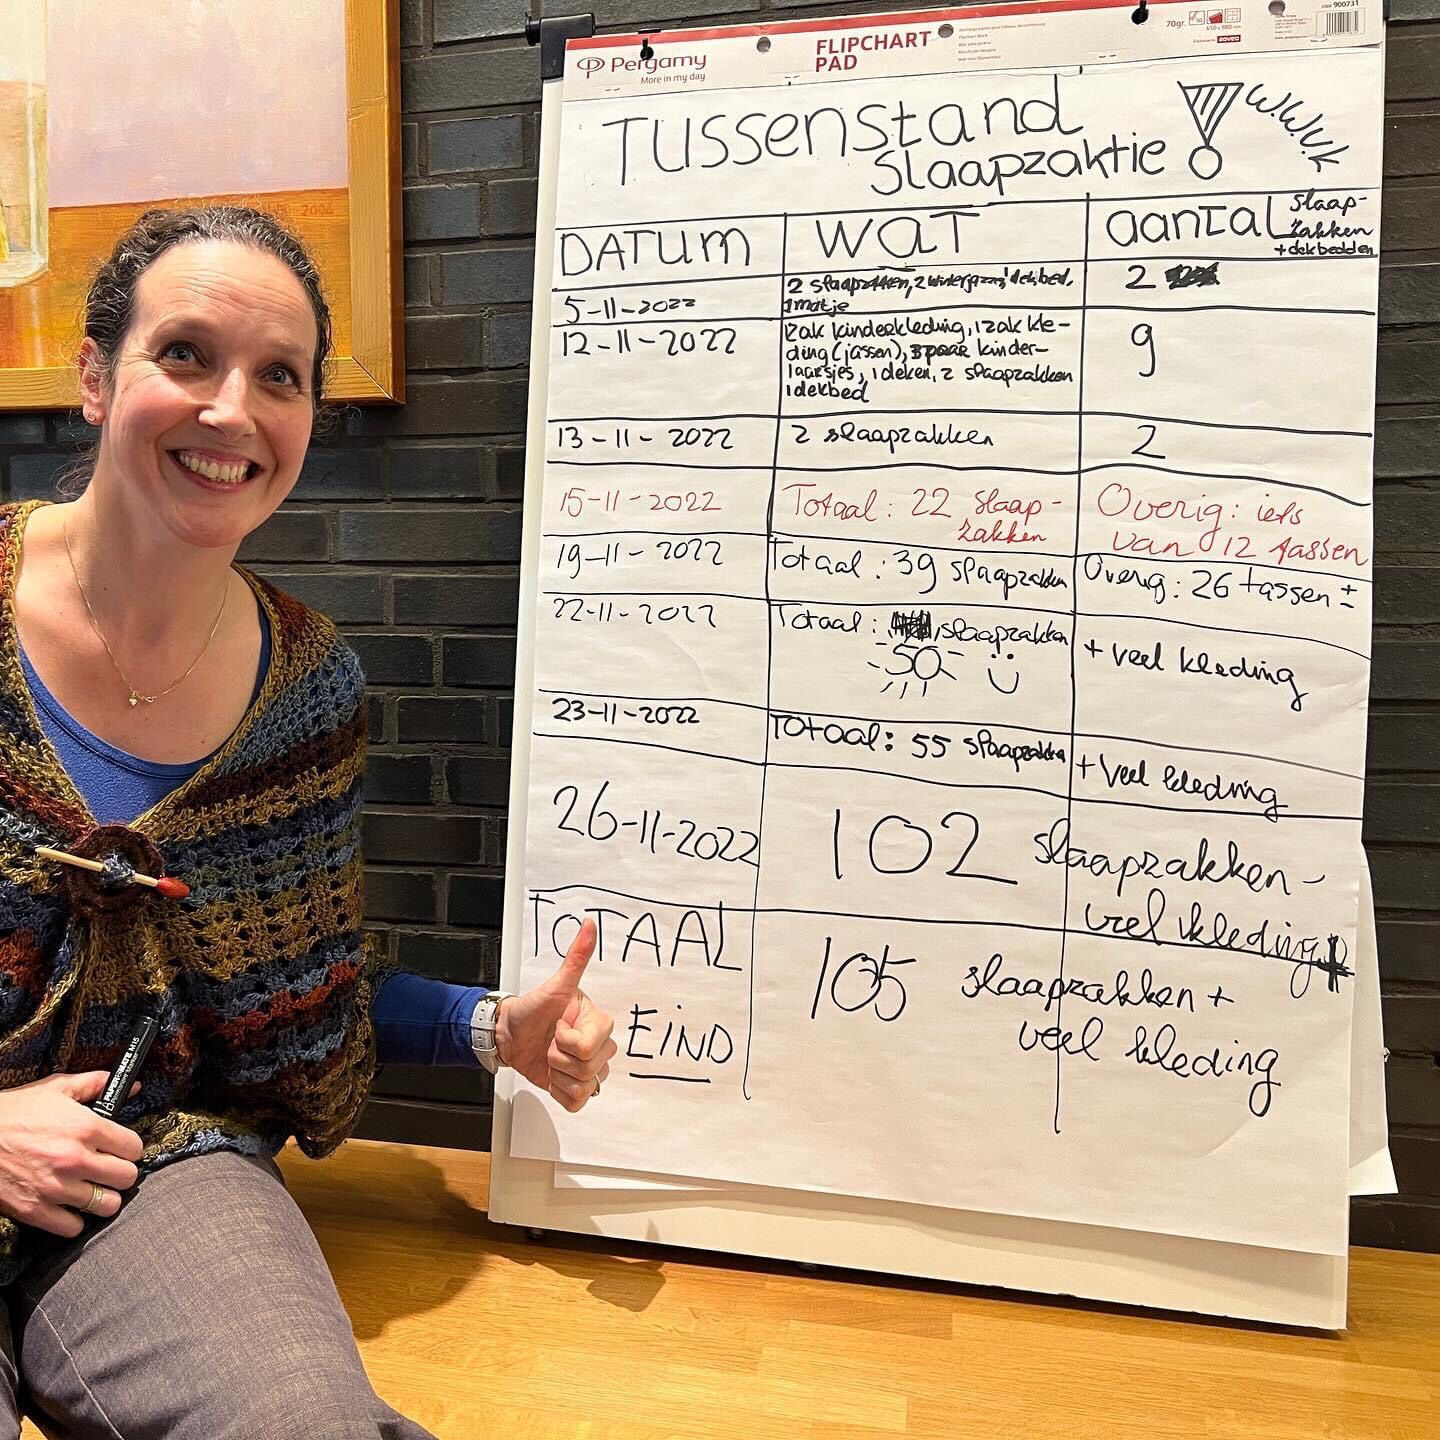 Pergamy
More in my day
FLIPCHART
PAD
70gr.
650 x 980 mm
code 900731
TUSSENSTAND
Slaapzaktie
W.W.V.K
DATUM WAT aantal slaap-
zakken
+ dekbedden
5-11-2022 2 slaapzakken, 2 winterjassen, 1 dekbed, 2
1 matje
12-11-2022 1 zak kinderkleding, 1 zak kle- 9
ding (jassen), 3 paar kinder-
laarsjes, 1 deken, 2 slaapzakken
1 dekbed
13-11-2022 2 slaapzakken 2
15-11-2022 Totaal: 22 slaap- Overig: iets
zakken van 12 tassen
19-11-2022 Totaal: 39 slaapzakken Overig: 26 tassen ±
22-11-2022 Totaal: slaapzakken + veel kleding
50
23-11-2022 Totaal: 55 slaapzakken + veel kleding
26-11-2022 102 slaapzakken -
veel kleding
TOTAAL 105 slaapzakken +
EIND veel kleding
2004
PAPER-MATE M15
Permanent Marker